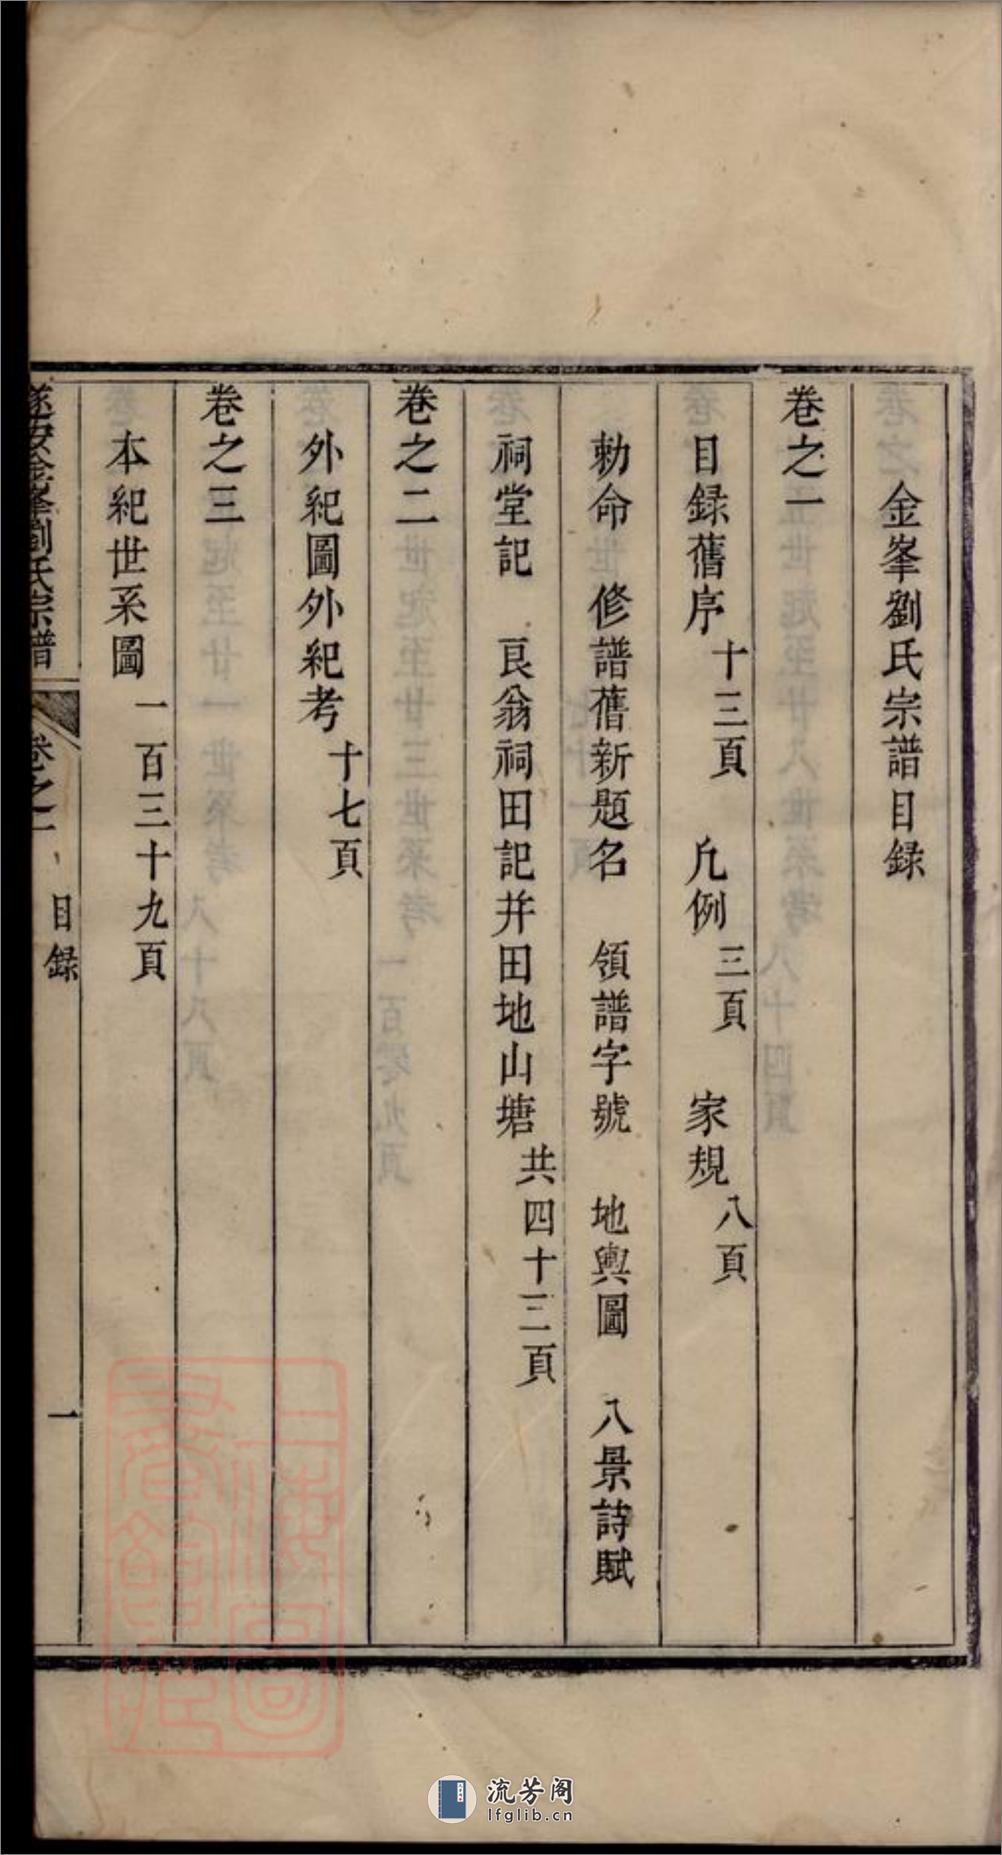 金峯劉氏宗譜目録
卷之一
目録舊序十三頁 凡例三頁 家規八頁
勅命 修譜舊新題名 領譜字號 地輿圖 八景詩賦
祠堂記 艮翁祠田記并田地山塘共四十三頁
卷之二
外紀圖外紀考十七頁
卷之三
本紀世系圖一百三十九頁
遂安金峯劉氏宗譜 卷之一 目録 一
上海圖書館藏
流芳阁
lfglib.cn